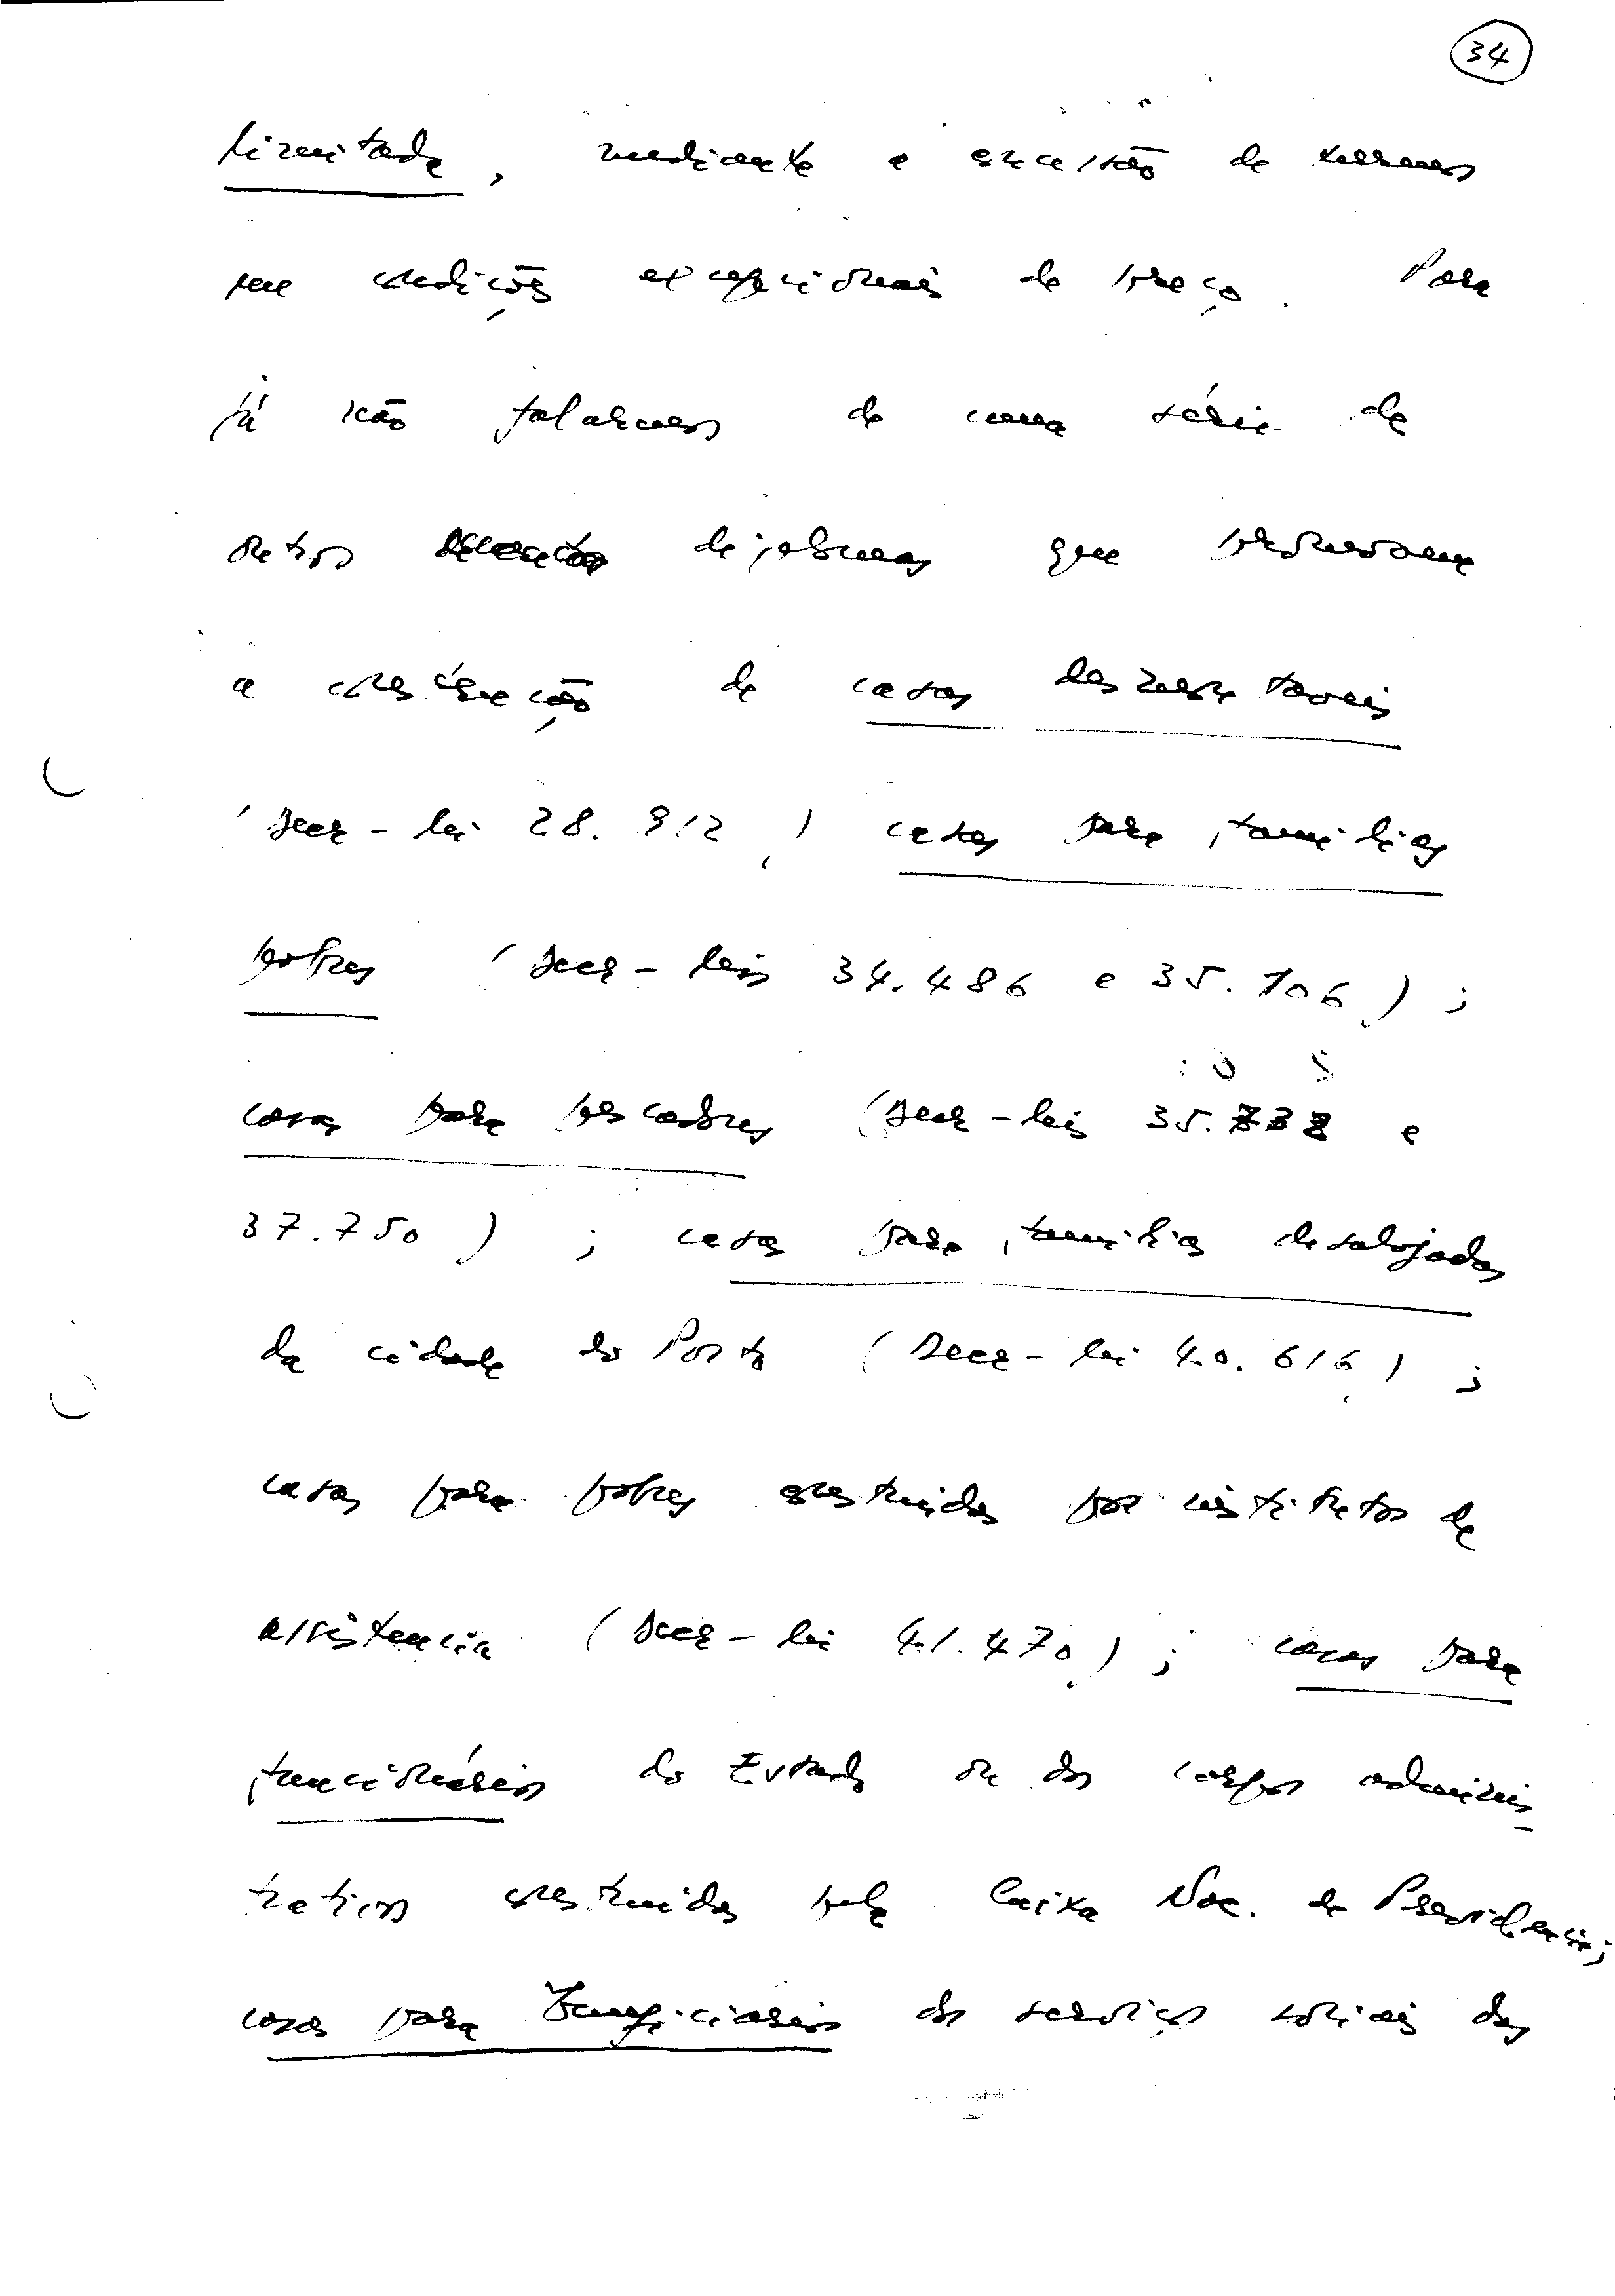 34
limitada, mediante a concessão de terrenos
em condições excepcionais de preço. Para
já não falarmos de uma série de
outros diplomas que promovem
a construção de casas desmontaveis
(Decr-lei 28.912,) casas para familias
pobres (Decr-leis 34.486 e 35.106);
casas para pescadores (Decr-leis 35.732 e
37.750); casas para familias desalojadas
da cidade do Porto (Decr-lei 40.616);
casas para pobres construidas por institutos de
assistencia (Decr-lei 41.470); casas para
funcionários do Estado ou dos corpos adminis-
trativos construidas pela Caixa Nac. de Previdencia;
casas para beneficiarios dos serviços sociais das